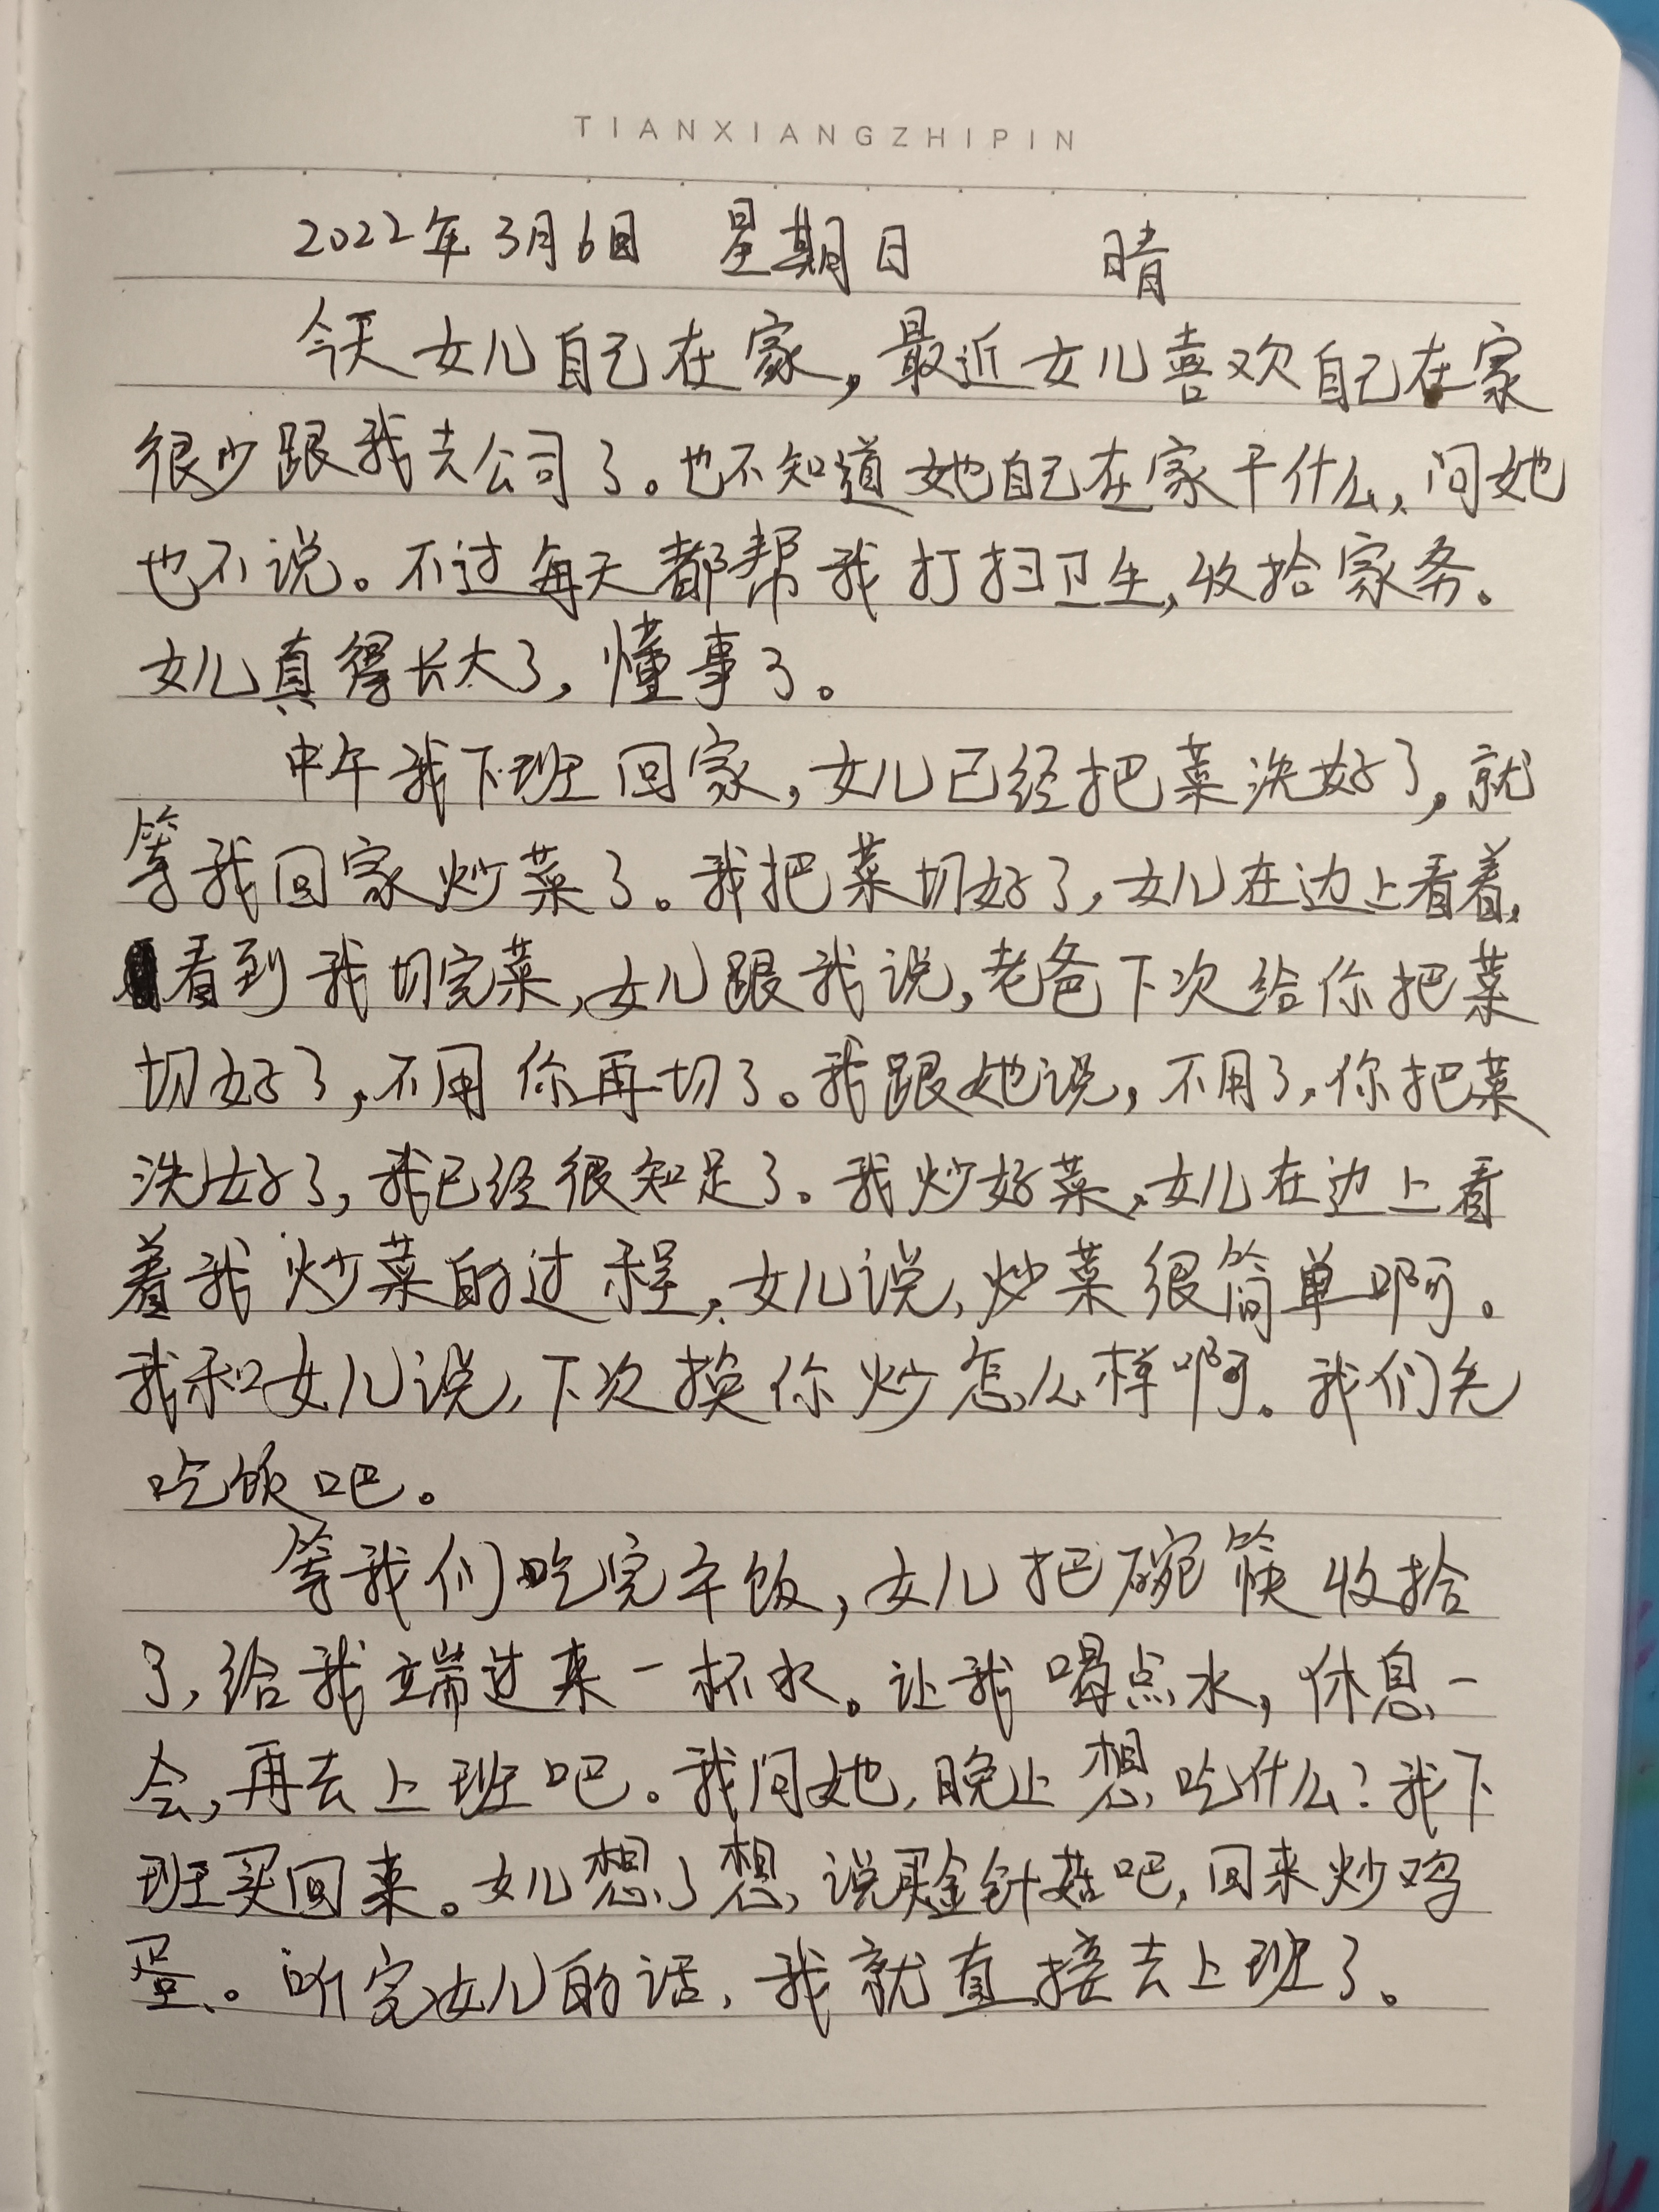 TIANXIANGZHIPIN
2022年3月6日 星期日 晴
今天女儿自己在家,最近女儿喜欢自己在家
很少跟我去公司了。也不知道她自己在家干什么,问她
也不说。不过每天都帮我打扫卫生,收拾家务。
女儿真得长大了,懂事了。
中午我下班回家,女儿已经把菜洗好了,就
等我回家炒菜了。我把菜切好了,女儿在边上看着,
看到我切完菜,女儿跟我说,老爸下次给你把菜
切好了,不用你再切了。我跟她说,不用了,你把菜
洗好了,我已经很知足了。我炒好菜,女儿在边上看
着我炒菜的过程,女儿说,炒菜很简单啊。
我和女儿说,下次换你炒怎么样啊。我们先
吃饭吧。
等我们吃完午饭,女儿把碗筷收拾
了,给我端过来一杯水。让我喝点水,休息一
会,再去上班吧。我问她,晚上想吃什么?我下
班买回来。女儿想了想,说买金针菇吧,回来炒鸡
蛋。听完女儿的话,我就直接去上班了。